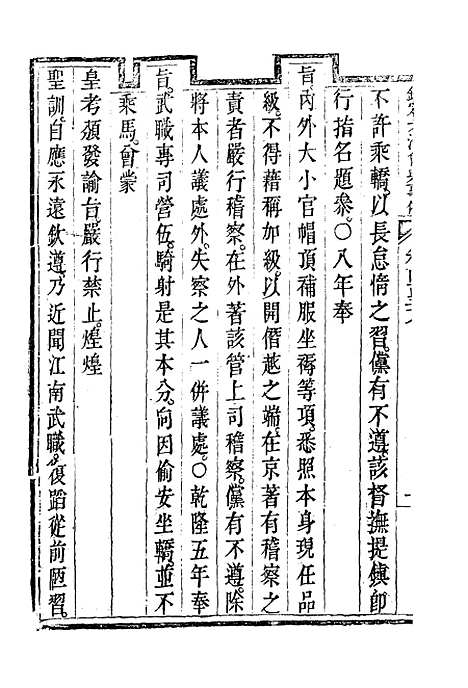 不許乘轎以長怠惰之習儻有不遵該督撫提鎮即
行指名題參○八年奉
旨內外大小官帽頂補服坐褥等項悉照本身現任品
級不得藉稱加級以開僭越之端在京著有稽察之
責者嚴行稽察在外著該管上司稽察儻有不遵除
將本人議處外失察之人一併議處○乾隆五年奉
旨武職專司營伍騎射是其本分向因偷安坐轎並不
乘馬曾蒙
皇考頒發諭旨嚴行禁止煌煌
聖訓自應永遠欽遵乃近聞江南武職復蹈從前陋習